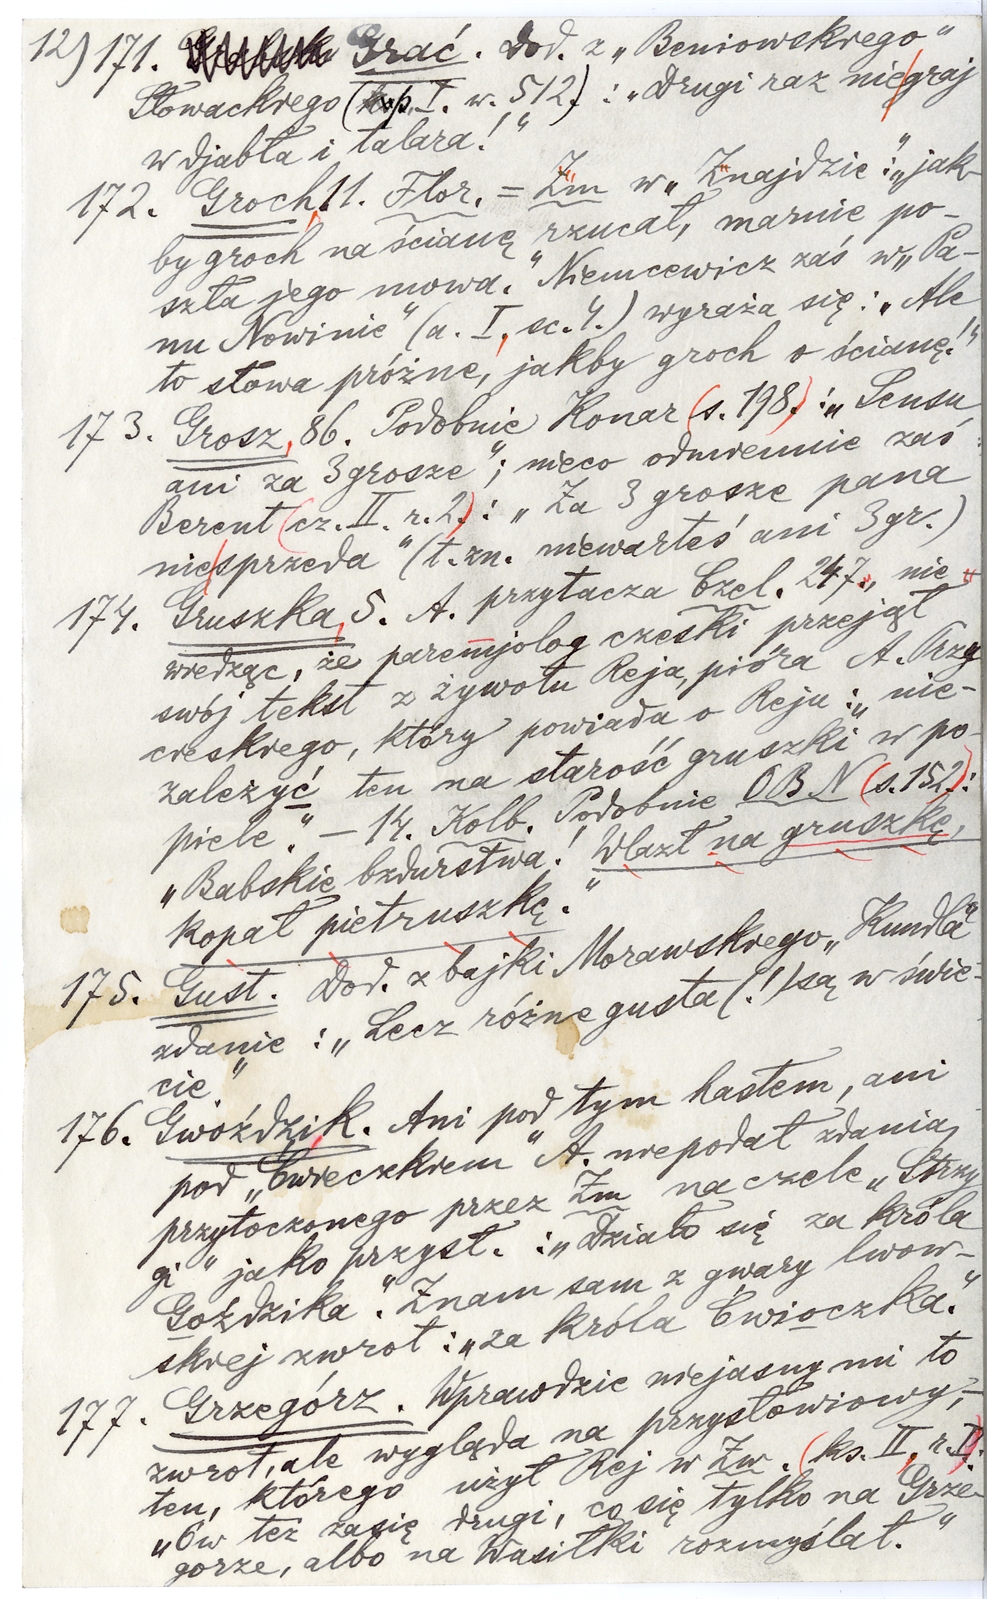 12) 171. Grać. Dod. z „Beniowskiego"
Słowackiego (I. w. 512) : „Drugi raz nie graj
w djabła i talara!"
172. Groch, 11. Flor. = Zm w „Znajdzie": „jak-
by groch na ścianę rzucał, marnie po-
szła jego mowa." Niemcewicz zaś w „Pa-
nu Nowinie" (a. I, sc. 4.) wyraża się : „Ale
to słowa próżne, jakby groch o ścianę!"
173. Grosz, 86. Podobnie Konar (s. 198) : „Sensu
ani za 3 grosze"; nieco odmiennie zaś
Berent (cz. II. r. 2.) : „Za 3 grosze pana
nie sprzeda" (t. zn. niewarteś ani 3 gr.)
174. Gruszka, 5. A. przytacza Czel. 247., nie
wiedząc, że paremjolog czeski przejął
swój tekst z żywotu Reja, pióra A. Trzy
cieskiego, który powiada o Reju : „nie-
zależyć ten na starość gruszki w po-
piele." – 14. Kolb. Podobnie OBN (s. 152) :
„Babskie bzdurstwa! Wlazł na gruszkę,
kopał pietruszkę."
175. Gust. Dod. z bajki Morawskiego „Kundla"
zdanie : „Lecz różne gusta (!) są w świe-
cie."
176. Gwóździk. Ani pod tym hasłem, ani
pod „Ćwieczkiem" A. nie podał zdania,
przytoczonego przez Zm na czele „Strzy
gi" jako przysł. : „Działo się za króla
Goździka". Znam sam z gwary lwow-
skiej zwrot : „za króla Ćwioczka."
177. Grzegórz. Wprawdzie niejasny mi to
zwrot, ale wygląda na przysłowiowy, –
ten, którego użył Rej w Zw. (ks. II, r. I).
„Ów też zasię drugi, co się tylko na Grze-
gorze, albo na Wasiłki rozmyślał."